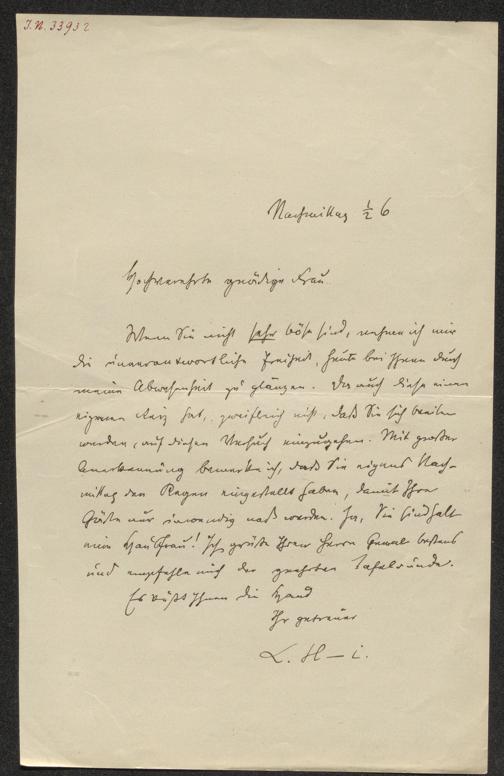 J.N. 33932
Nachmittag ½ 6
Hochverehrte gnädige Frau
Wenn Sie nicht sehr böse sind, nehme ich mir
die unverantwortliche Freiheit, heute bei Ihnen durch
meine Abwesenheit zu glänzen. Da auch diese einen
eigenen Reiz hat, zweifle ich nicht, daß Sie sich beeilen
werden, auf diesen Versuch einzugehen. Mit großer
Anerkennung bemerke ich, daß Sie eigens Nach-
mittag den Regen eingestellt haben, damit Ihre
Gäste nur inwendig naß werden. Ja, Sie sind halt
eine Hausfrau! Ich grüße Ihren Herrn Gemal bestens
und empfehle mich der geehrten Tafelrunde.
Es küßt Ihnen die Hand
Ihr getreuer
L. H–i.